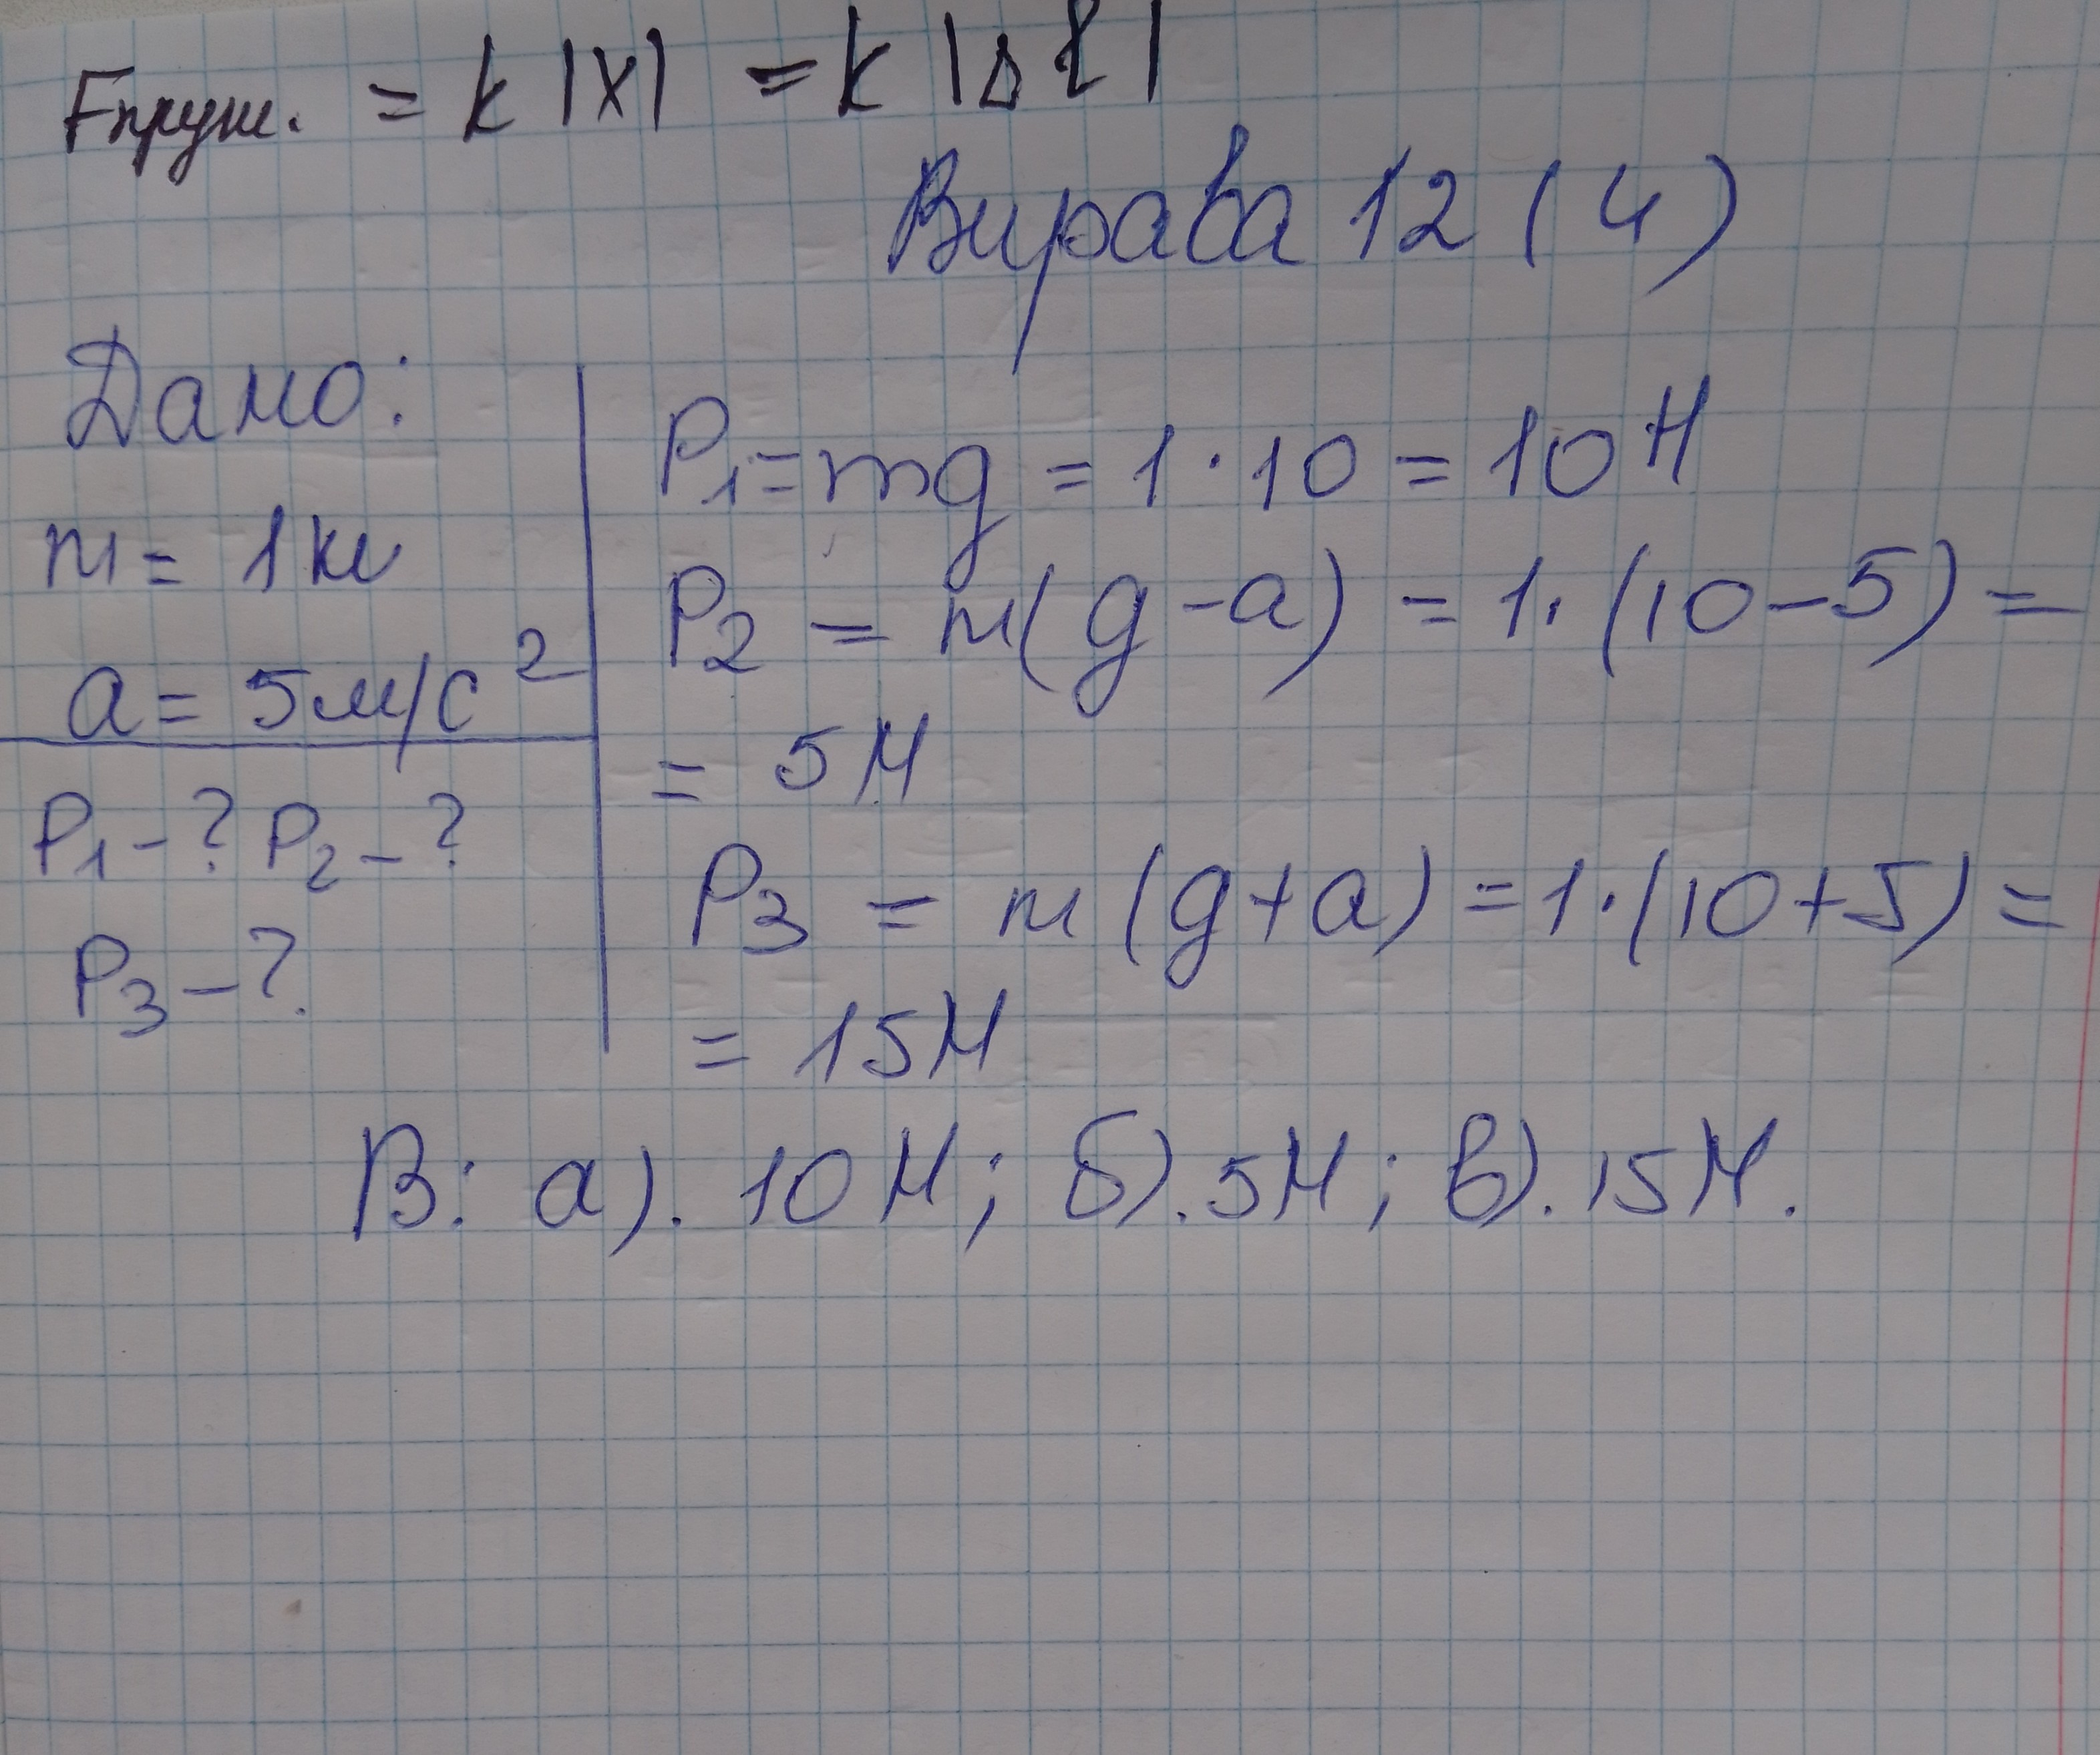 Fпруж. = k |x| = k |Δℓ|
Вправа 12 (4)
Дано:
m = 1 кг
a = 5 м/с²
P₁ - ? P₂ - ?
P₃ - ?
P₁ = mg = 1 · 10 = 10 Н
P₂ = m(g - a) = 1 · (10 - 5) =
= 5 Н
P₃ = m(g + a) = 1 · (10 + 5) =
= 15 Н
В: а). 10 Н; б). 5 Н; в). 15 Н.